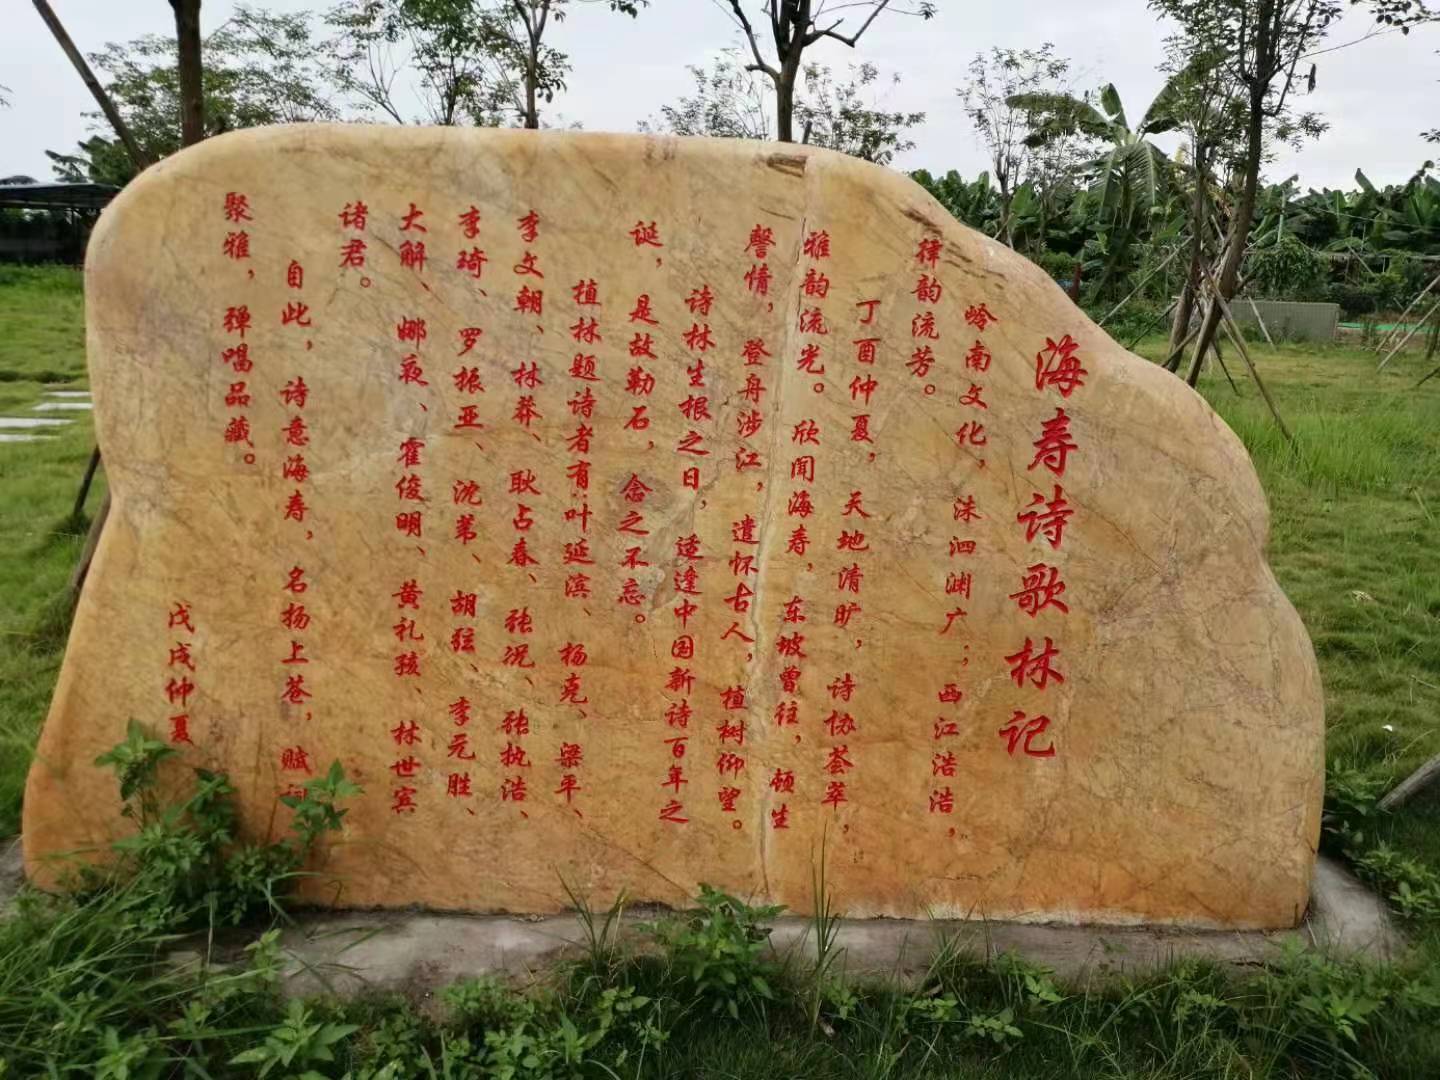 海寿诗歌林记
岭南文化，洙泗渊广；西江浩浩，
律韵流芳。
丁酉仲夏，天地清旷，诗协荟萃，
雅韵流光。欣闻海寿，东坡曾往，顿生
謦情，登舟涉江，遣怀古人，植树仰望。
诗林生根之日，适逢中国新诗百年之
诞，是故勒石，念之不忘。
植林题诗者有：叶延滨、杨克、梁平、
李文朝、林莽、耿占春、张况、张执浩、
李琦、罗振亚、沈苇、胡弦、李元胜、
大解、娜夜、霍俊明、黄礼孩、林世宾
诸君。
自此，诗意海寿，名扬上苍，赋词
聚雅，弹唱品藏。
戊戌仲夏